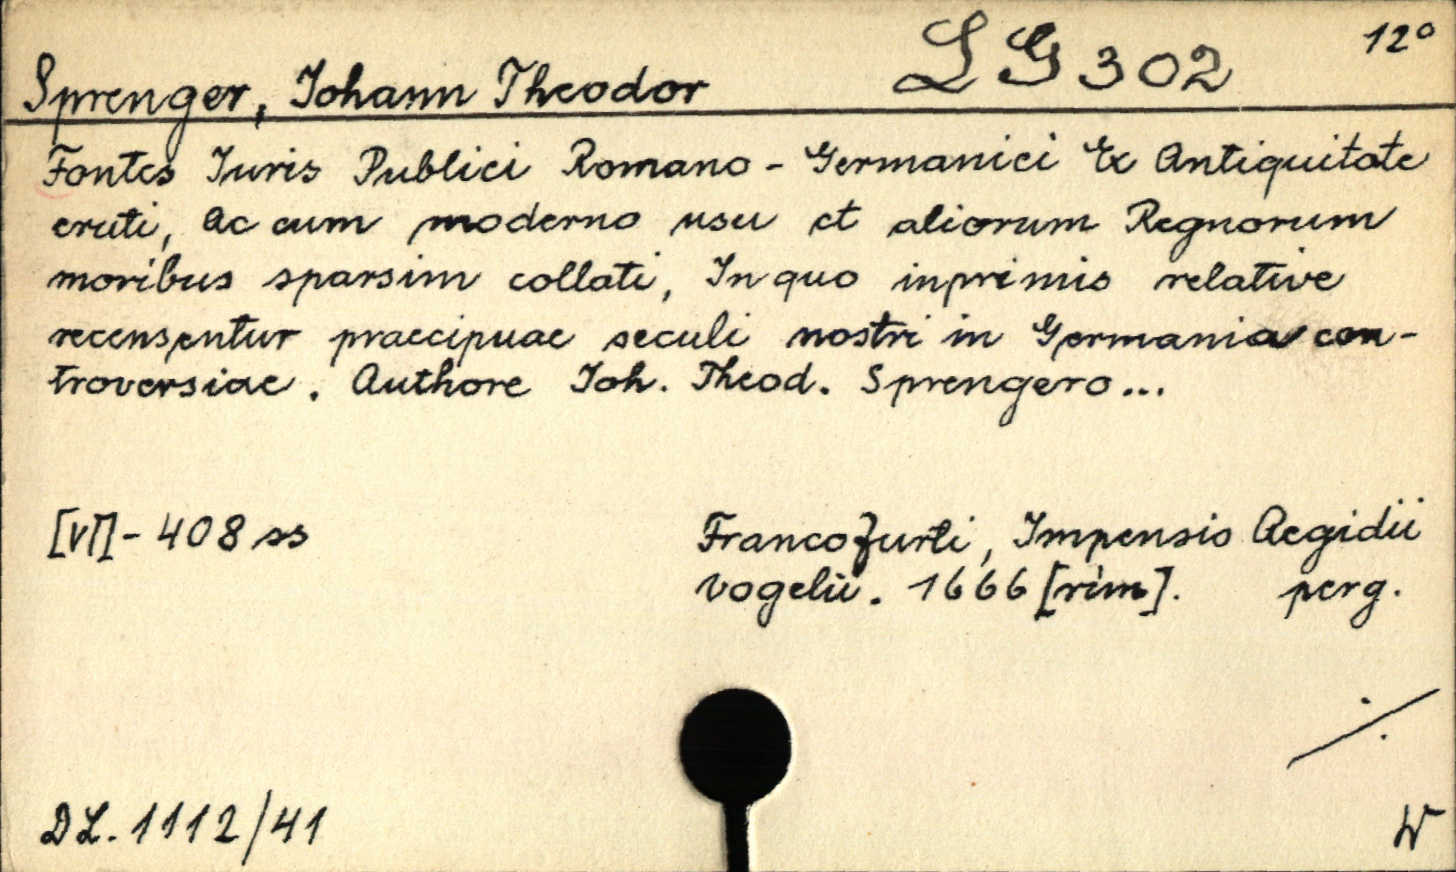 LG 302
12°
Sprenger, Iohann Theodor
Fontes Iuris Publici Romano-Germanici Ex Antiquitate
eruti, Ac cum moderno usu et aliorum Regnorum
moribus sparsim collati, In quo inprimis relative
recensentur praecipuae seculi nostri in Germania con-
troversiae. Authore Ioh. Theod. Sprengero...
[VI]-408 ss
Francofurti, Impensis Aegidii
Vogelii. 1666 [rim]. perg.
./.
DL. 1112/41
W